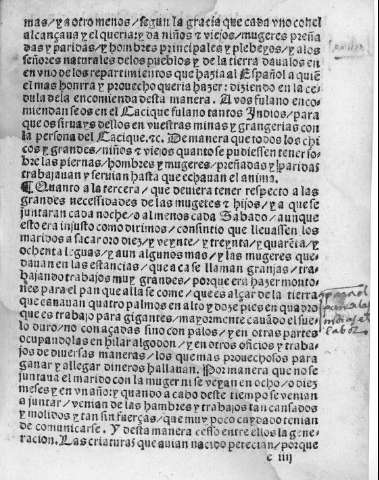 mas/y a otro menos/segun la gracia que cada vno cõ el
alcançaua y el queria: y da niños z viejos/mugeres preña
das y paridas/y hombres principales y plebeyos/y a los
señores naturales de los pueblos y de la tierra daualos en
en vno de los repartimientos que hazia al Español a quiẽ
el mas honrra y prouecho queria hazer: diziendo en la ce
dula de la encomienda desta manera. A vos fulano enco-
miendan se os en el Cacique fulano tantos Indios/para
que os siruays dellos en vuestras minas y grangerias con
la persona del Cacique.zc. De manera que todos los chi
cos y grandes/niños z viejos quanto se pudiessen tener so
bre las piernas/hombres y mugeres/preñadas y paridas
trabajauan y seruian hasta que echauan el anima.
¶ Quanto a la tercera/que deuiera tener respecto a las
grandes necessidades de las mugeres z hijos/y a que se
juntaran cada noche/o al menos cada Sabado/aunque
esto era injusto como dirimos/consintio que lleuassen los
maridos a sacar oro diez/y veynte/y treynta/y quarẽta/y
ochenta leguas/y aun algunos mas/y las mugeres que-
dauan en las estancias/que aca se llaman granjas/tra-
bajando trabajos muy grandes/porque era hazer monto-
nes para el pan que alla se come/que es alçar de la tierra
que cauauan quatro palmos en alto y doze pies en quadro
que es trabajo para gigantes/mayormente cauãdo el sue-
lo duro/no con açadas sino con palos/y en otras partes
ocupandolas en hilar algodon/y en otros oficios y traba-
jos de diversas maneras/los que mas prouechosos para
ganar y allegar dineros hallauan. Por manera que no se
juntaua el marido con la muger ni se veyan en ocho/o diez
meses y en vn año: y quando a cabo deste tiempo se venian
a juntar/venian de las hambres y trabajos tan cansados
y molidos y tan sin fuerças/que muy poco cuydado tenian
de comunicarse. Y desta manera cesso entre ellos la gene-
racion. Las criaturas que auian nacido perecian/porque
c iiij